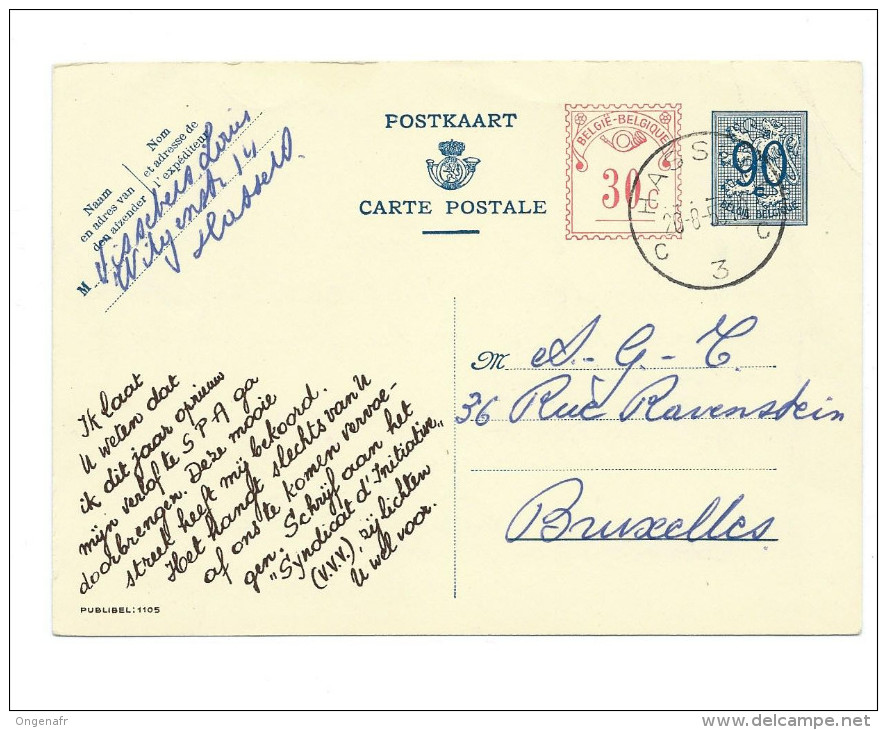 Naam
en adres van
den afzender
Nom
et adresse de
l'expéditeur
M
Louis
14
Hasselt
POSTKAART
CARTE POSTALE
BELGIË-BELGIQUE
30
90
C
3
C
M A.-G.-T.
36 Rue Ravenstein
Bruxelles
Ik laat
U weten dat
ik dit jaar opnieuw
mijn verlof te SPA ga
doorbrengen. Deze mooie
streek heeft mij bekoord.
Het hangt slechts van U
af ons te komen vervoe-
gen. Schrijf aan het
"Syndicat d'Initiative"
(V.V.V.), zij lichten
U wel voor.
PUBLIBEL: 1105
Ongenafr
delcampe.net